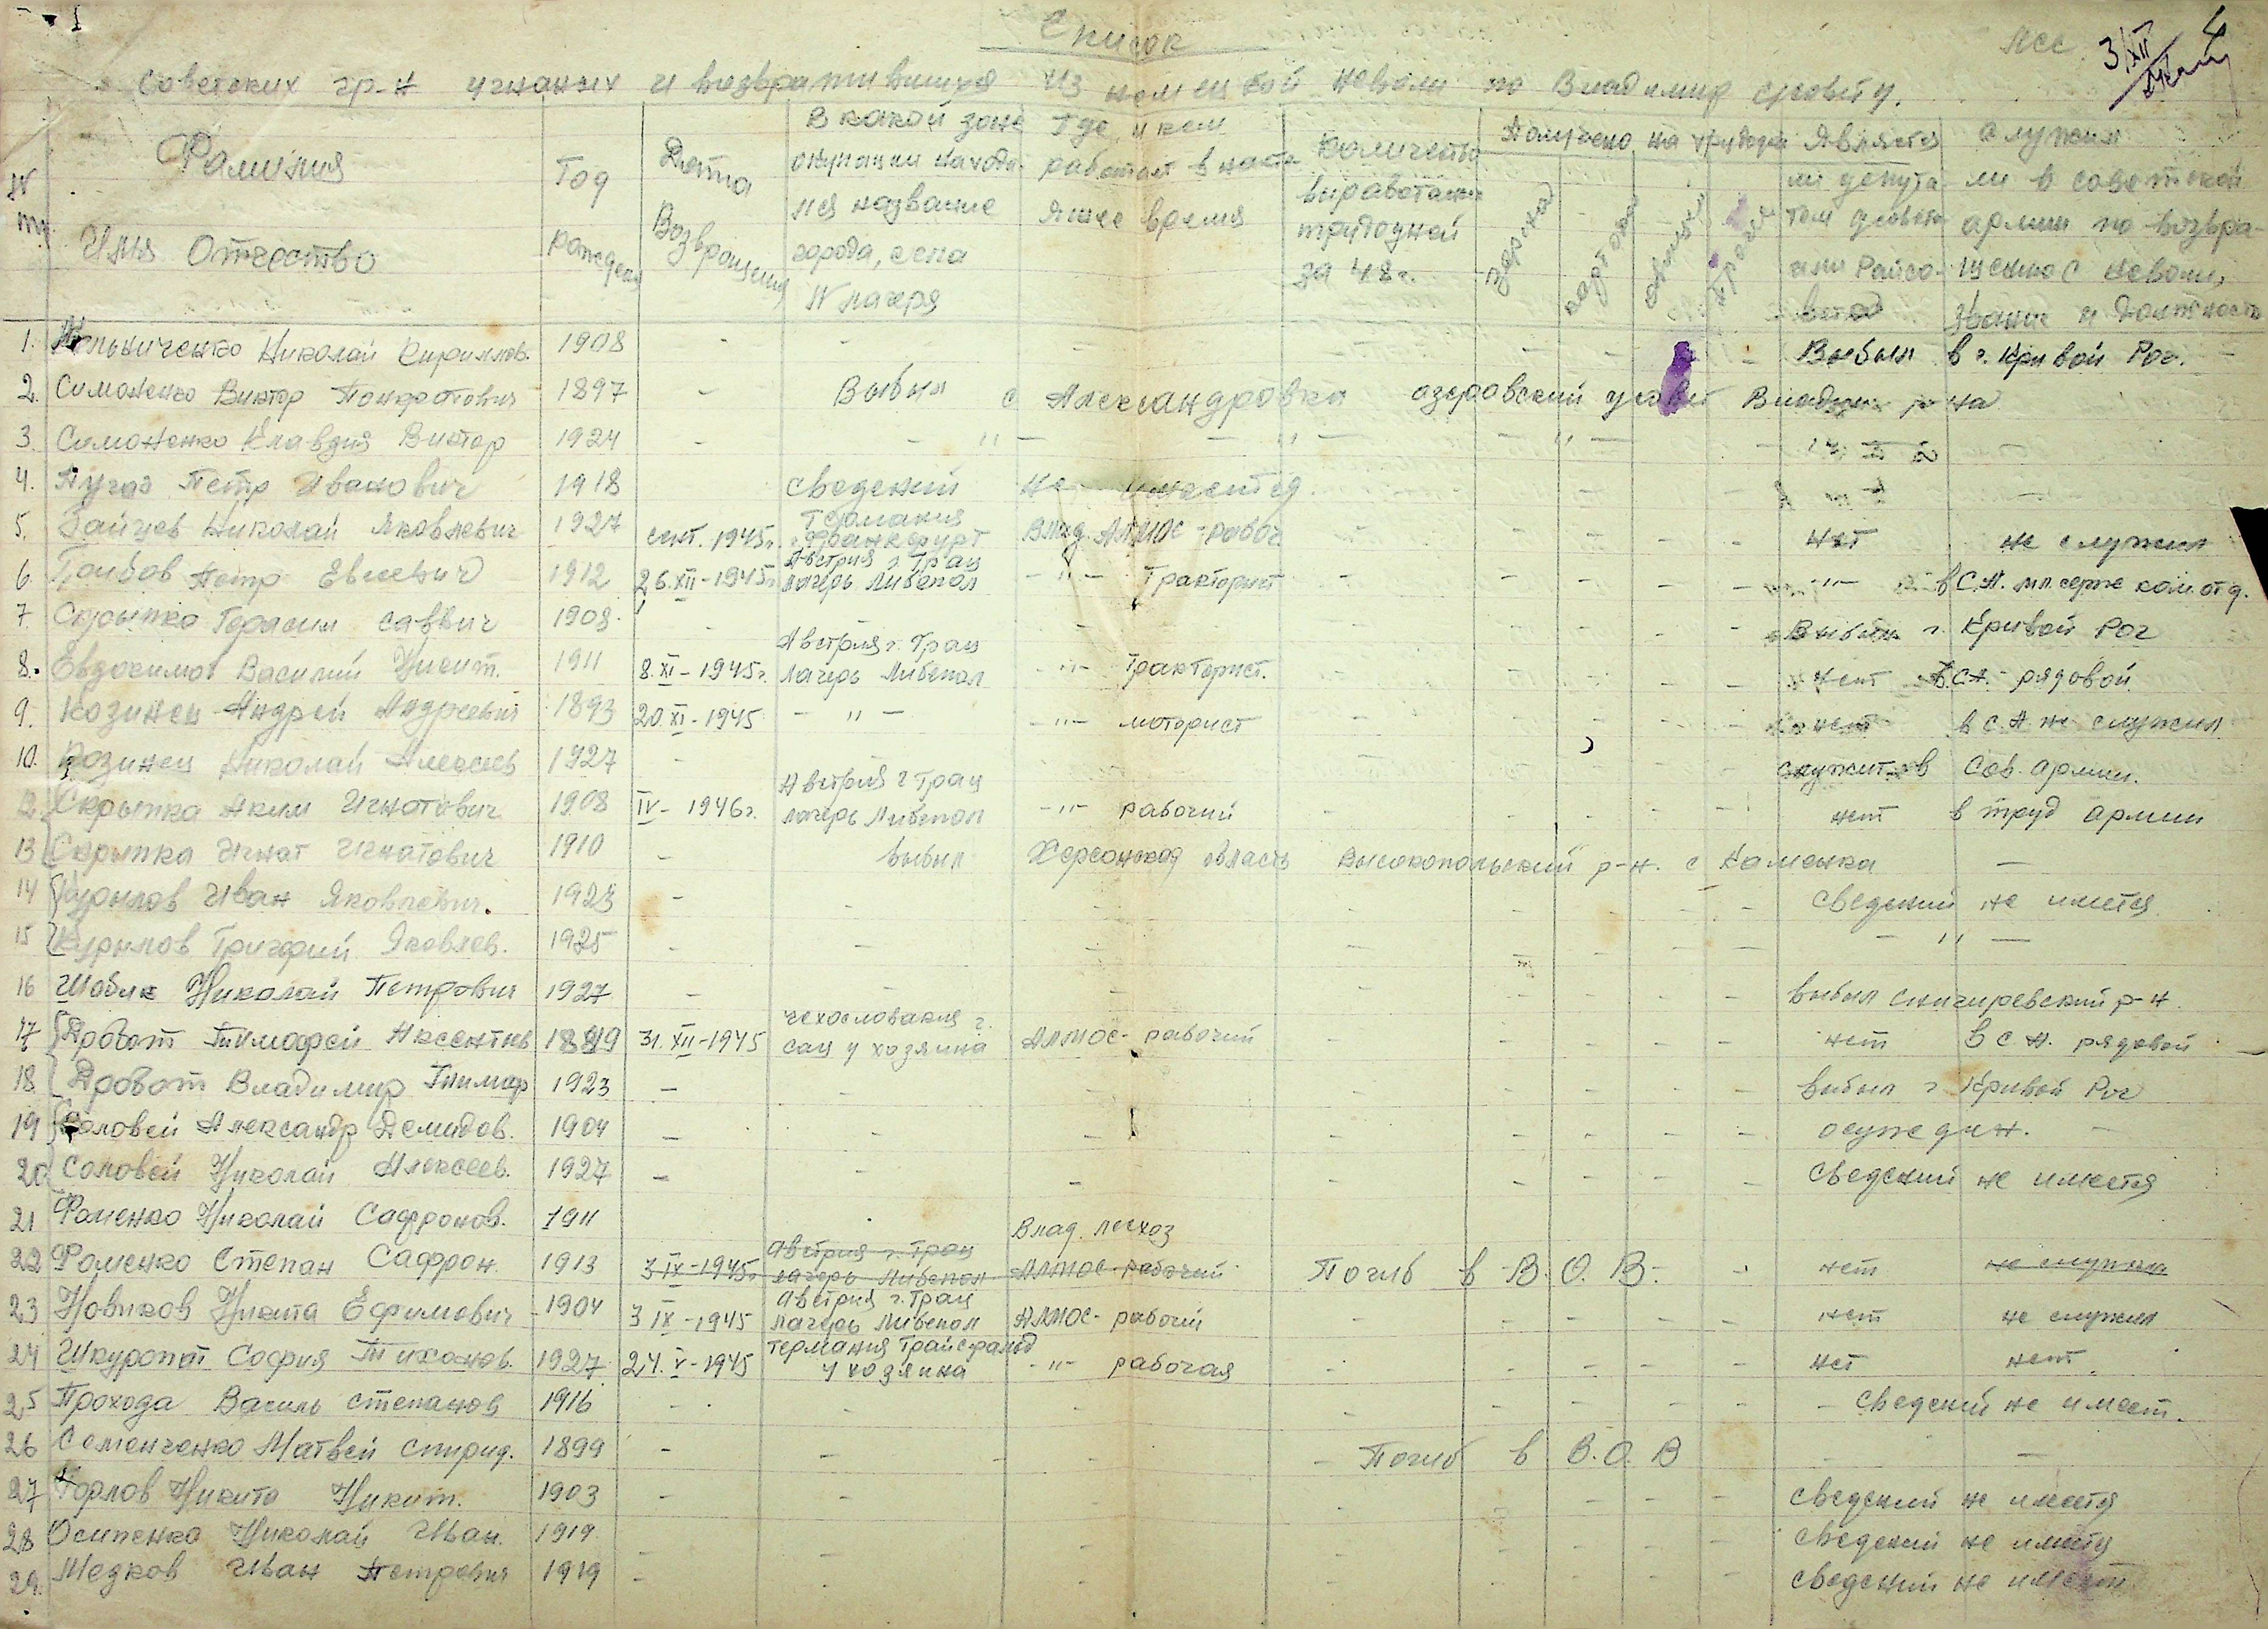 Список
Советских гр-н угнаных и возвратившихся из немецкой неволи по Владимир с/совету.
4
3/XII
N
пп
Фамилия
Имя Отчество
Год рождения
Дата Возвращения
В какой зоне
окупации находи-
лся название
города, села
N лагеря
Где и кем
работает в насто
ящее время
Количество
выработаных
трудодней
за 48 г.
Получено на трудодни
Является
ли депута-
том с/совета
или Райсо-
вета
служил
ли в советской
армии по возвра-
щению с неволи,
звание и должность
1. Мельниченко Николай Кириллов. 1908 - - - - Выбыл в г. Кривой Рог. -
2. Симоненко Виктор Пондратович 1897 - Выбыл с Александровка озеровский с/совет Владим р-на
3. Симоненко Клавдия Виктор 1924 - - " - - " - - " -
4. Пугач Петр Иванович 1918 сведений не имеется
5. Зайцев Николай Яковлевич 1927 сент. 1945г. Германия г. Франкфурт Влад. АЛМОС - рабоч. нет не служил
6. Грибов Петр Евсеевич 1912 26.XII-1945г. Австрия г. Грац лагерь Либенал - " - Тракторист - " - в С.А. мл. серж ком. отд.
7. Скрыпка Герасим Саввич 1908. - - Выбыл г. Кривой Рог
8. Евдокимов Василий Никит. 1911 8.XI-1945г. Австрия г. Грац лагерь Либенал - " - тракторист. нет в С.А. - рядовой
9. Козинец Андрей Андреевич 1893 20.XI-1945 - " - - " - моторист нет в С.А. не служил
10. Козинец Николай Алексеев 1927 - служит в Сов. армии.
12. Скрыпка Аким Игнатович 1908 IV-1946г. Австрия г. Грац лагерь Либенал - " - рабочий нет в труд армии
13 Скрыпка Игнат Игнатович 1910 - выбыл Херсонская область Высокопольский р-н. с Каменка -
14 Курилов Иван Яковлевич. 1923 - - сведений не имется
15 Курилов Григорий Яковлев. 1925 - - - " -
16 Шабля Николай Петрович 1927 - - выбыл Снигиревский р-н.
17 Дробот Тимофей Аксентиев 1889 31.XII-1945 Чехословакия г. сац у хозяина АЛМОС - рабочий нет в С.А. рядовой
18 Дробот Владимир Тимоф 1923 - - выбыл г. Кривой Рог
19 Соловей Александр Демидов. 1904 - - осужден. -
20 Соловей Николай Алексеев. 1927 - - сведений не имется
21 Фоменко Николай Сафронов. 1911 Влад. лесхоз
22 Фоменко Степан Сафрон. 1913 3 IX-1945г. Австрия г. Грац лагерь Либенал АЛМОС рабочий Погиб в В.О.В. - нет не служил
23 Новиков Никита Ефимович 1904 3 IX-1945 Австрия г. Грац лагерь Либенал АЛМОС - рабочий нет не служил
24 Шкуропат София Тихонов. 1927 24.V-1945 Германия Грайсфальд у хозяина - " - рабочая нет нет
25 Прохода Василь Степанов 1916 - - - сведений не имеет.
26 Семенченко Матвей Спирид. 1899 - - Погиб в В.О.В -
27 Горлов Никита Никит. 1903 - - сведений не имеется
28 Осипенко Николай Иван. 1919 - сведений не имеется
29. Медков Иван Петрович 1919 - - сведений не имеет